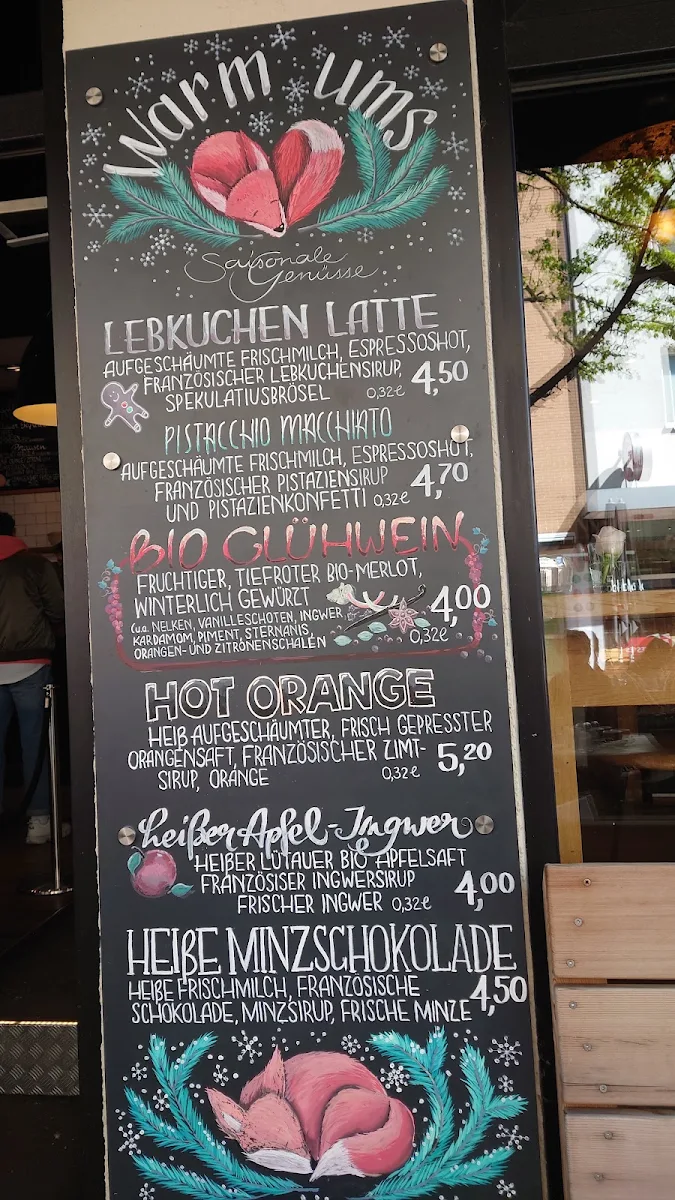 Warm ums
Saisonale
Genüsse
LEBKUCHEN LATTE
AUFGESCHÄUMTE FRISCHMILCH, ESPRESSOSHOT,
FRANZÖSISCHER LEBKUCHENSIRUP, 4,50
SPEKULATIUSBRÖSEL 0,32€
PISTACCHIO MACCHIATO
AUFGESCHÄUMTE FRISCHMILCH, ESPRESSOSHOT,
FRANZÖSISCHER PISTAZIENSIRUP 4,70
UND PISTAZIENKONFETTI 0,32€
BIO GLÜHWEIN
FRUCHTIGER, TIEFROTER BIO-MERLOT,
WINTERLICH GEWÜRZT 4,00
(U.A. NELKEN, VANILLESCHOTEN, INGWER,
KARDAMOM, PIMENT, STERNANIS, 0,32€
ORANGEN- UND ZITRONENSCHALEN
HOT ORANGE
HEIß AUFGESCHÄUMTER, FRISCH GEPRESSTER
ORANGENSAFT, FRANZÖSISCHER ZIMT- 5,20
SIRUP, ORANGE 0,32€
heißer Apfel-Ingwer
HEIßER LÜTAUER BIO APFELSAFT
FRANZÖSISER INGWERSIRUP 4,00
FRISCHER INGWER 0,32€
HEIßE MINZSCHOKOLADE
HEIßE FRISCHMILCH, FRANZÖSISCHE 4,50
SCHOKOLADE, MINZSIRUP, FRISCHE MINZE